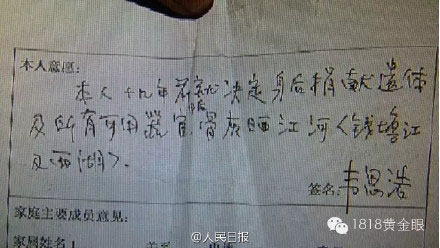 本人意愿:
本人十九年前就决定身后捐献遗体
及所有可用器官,骨灰洒江河<钱塘江
及西湖>。
签名:韦思浩
家庭主要成员意见:
家属姓名1
@人民日报
1818黄金眼